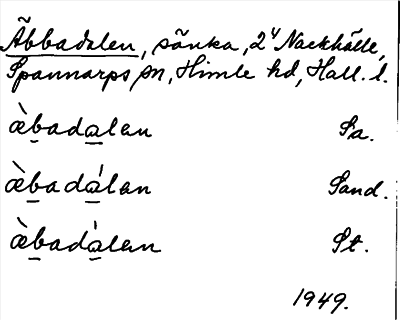 Äbbadalen, sänka, 2⁴ Nackhälle,
Spannarps sn, Himle hd, Hall. l.
æ̀b̲ada̲len Sa.
æ̀b̲adá̲lan Sand.
æ̀b̲adá̲lan St.
1949.